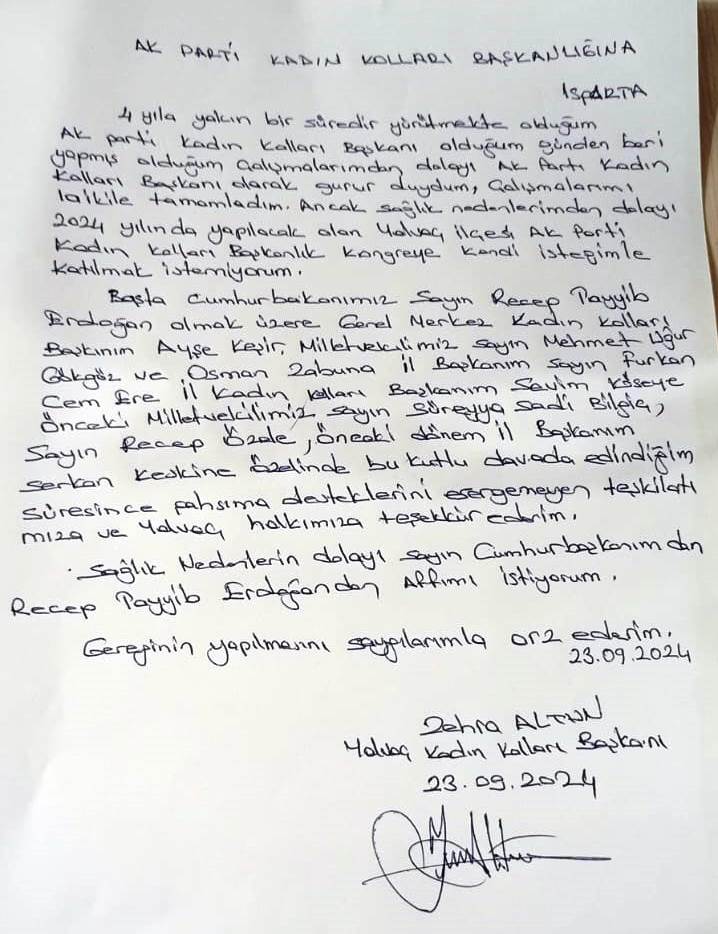 AK PARTİ KADIN KOLLARI BAŞKANLIĞINA
ISPARTA
4 yıla yakın bir süredir yürütmekte olduğum
AK parti Kadın Kolları Başkanı olduğum günden beri
yapmış olduğum Çalışmalarımdan dolayı AK Parti Kadın
Kolları Başkanı olarak gurur duydum, Çalışmalarımı
laikile tamamladım. Ancak sağlık nedenlerimden dolayı
2024 yılında yapılacak olan Yalvaç ilçesi AK Parti
Kadın Kolları Başkanlık Kongreye Kendi isteğimle
Katılmak istemiyorum.
Başta Cumhurbakanımız Sayın Recep Tayyib
Erdoğan olmak üzere Genel Merkez Kadın Kolları
Başkınım Ayşe Keşir, Milletvekilimiz sayın Mehmet Uğur
Gökgöz ve Osman Zabuna il Başkanım sayın Furkan
Cem Ere il Kadın Kolları Başkanım Sevim Köseye
Önceki Milletvekilimiz sayın Süreyya Sadi Bilgiç,
Sayın Recep Özele, önceki dönem il Başkanım
Serkan Keskine özelinde bu kutlu davada edindiğim
süresince şahsıma desteklerini esergemeyen teşkilatı
mıza ve Yalvaç halkımıza teşekkür ederim.
Sağlık Nedenlerin dolayı sayın Cumhurbaşkanımdan
Recep Tayyib Erdoğandan Affımı istiyorum.
Gereğinin yapılmasını saygılarımla arz ederim.
23.09.2024
Zehra ALTUN
Yalvaç Kadın Kolları Başkanı
23.09.2024